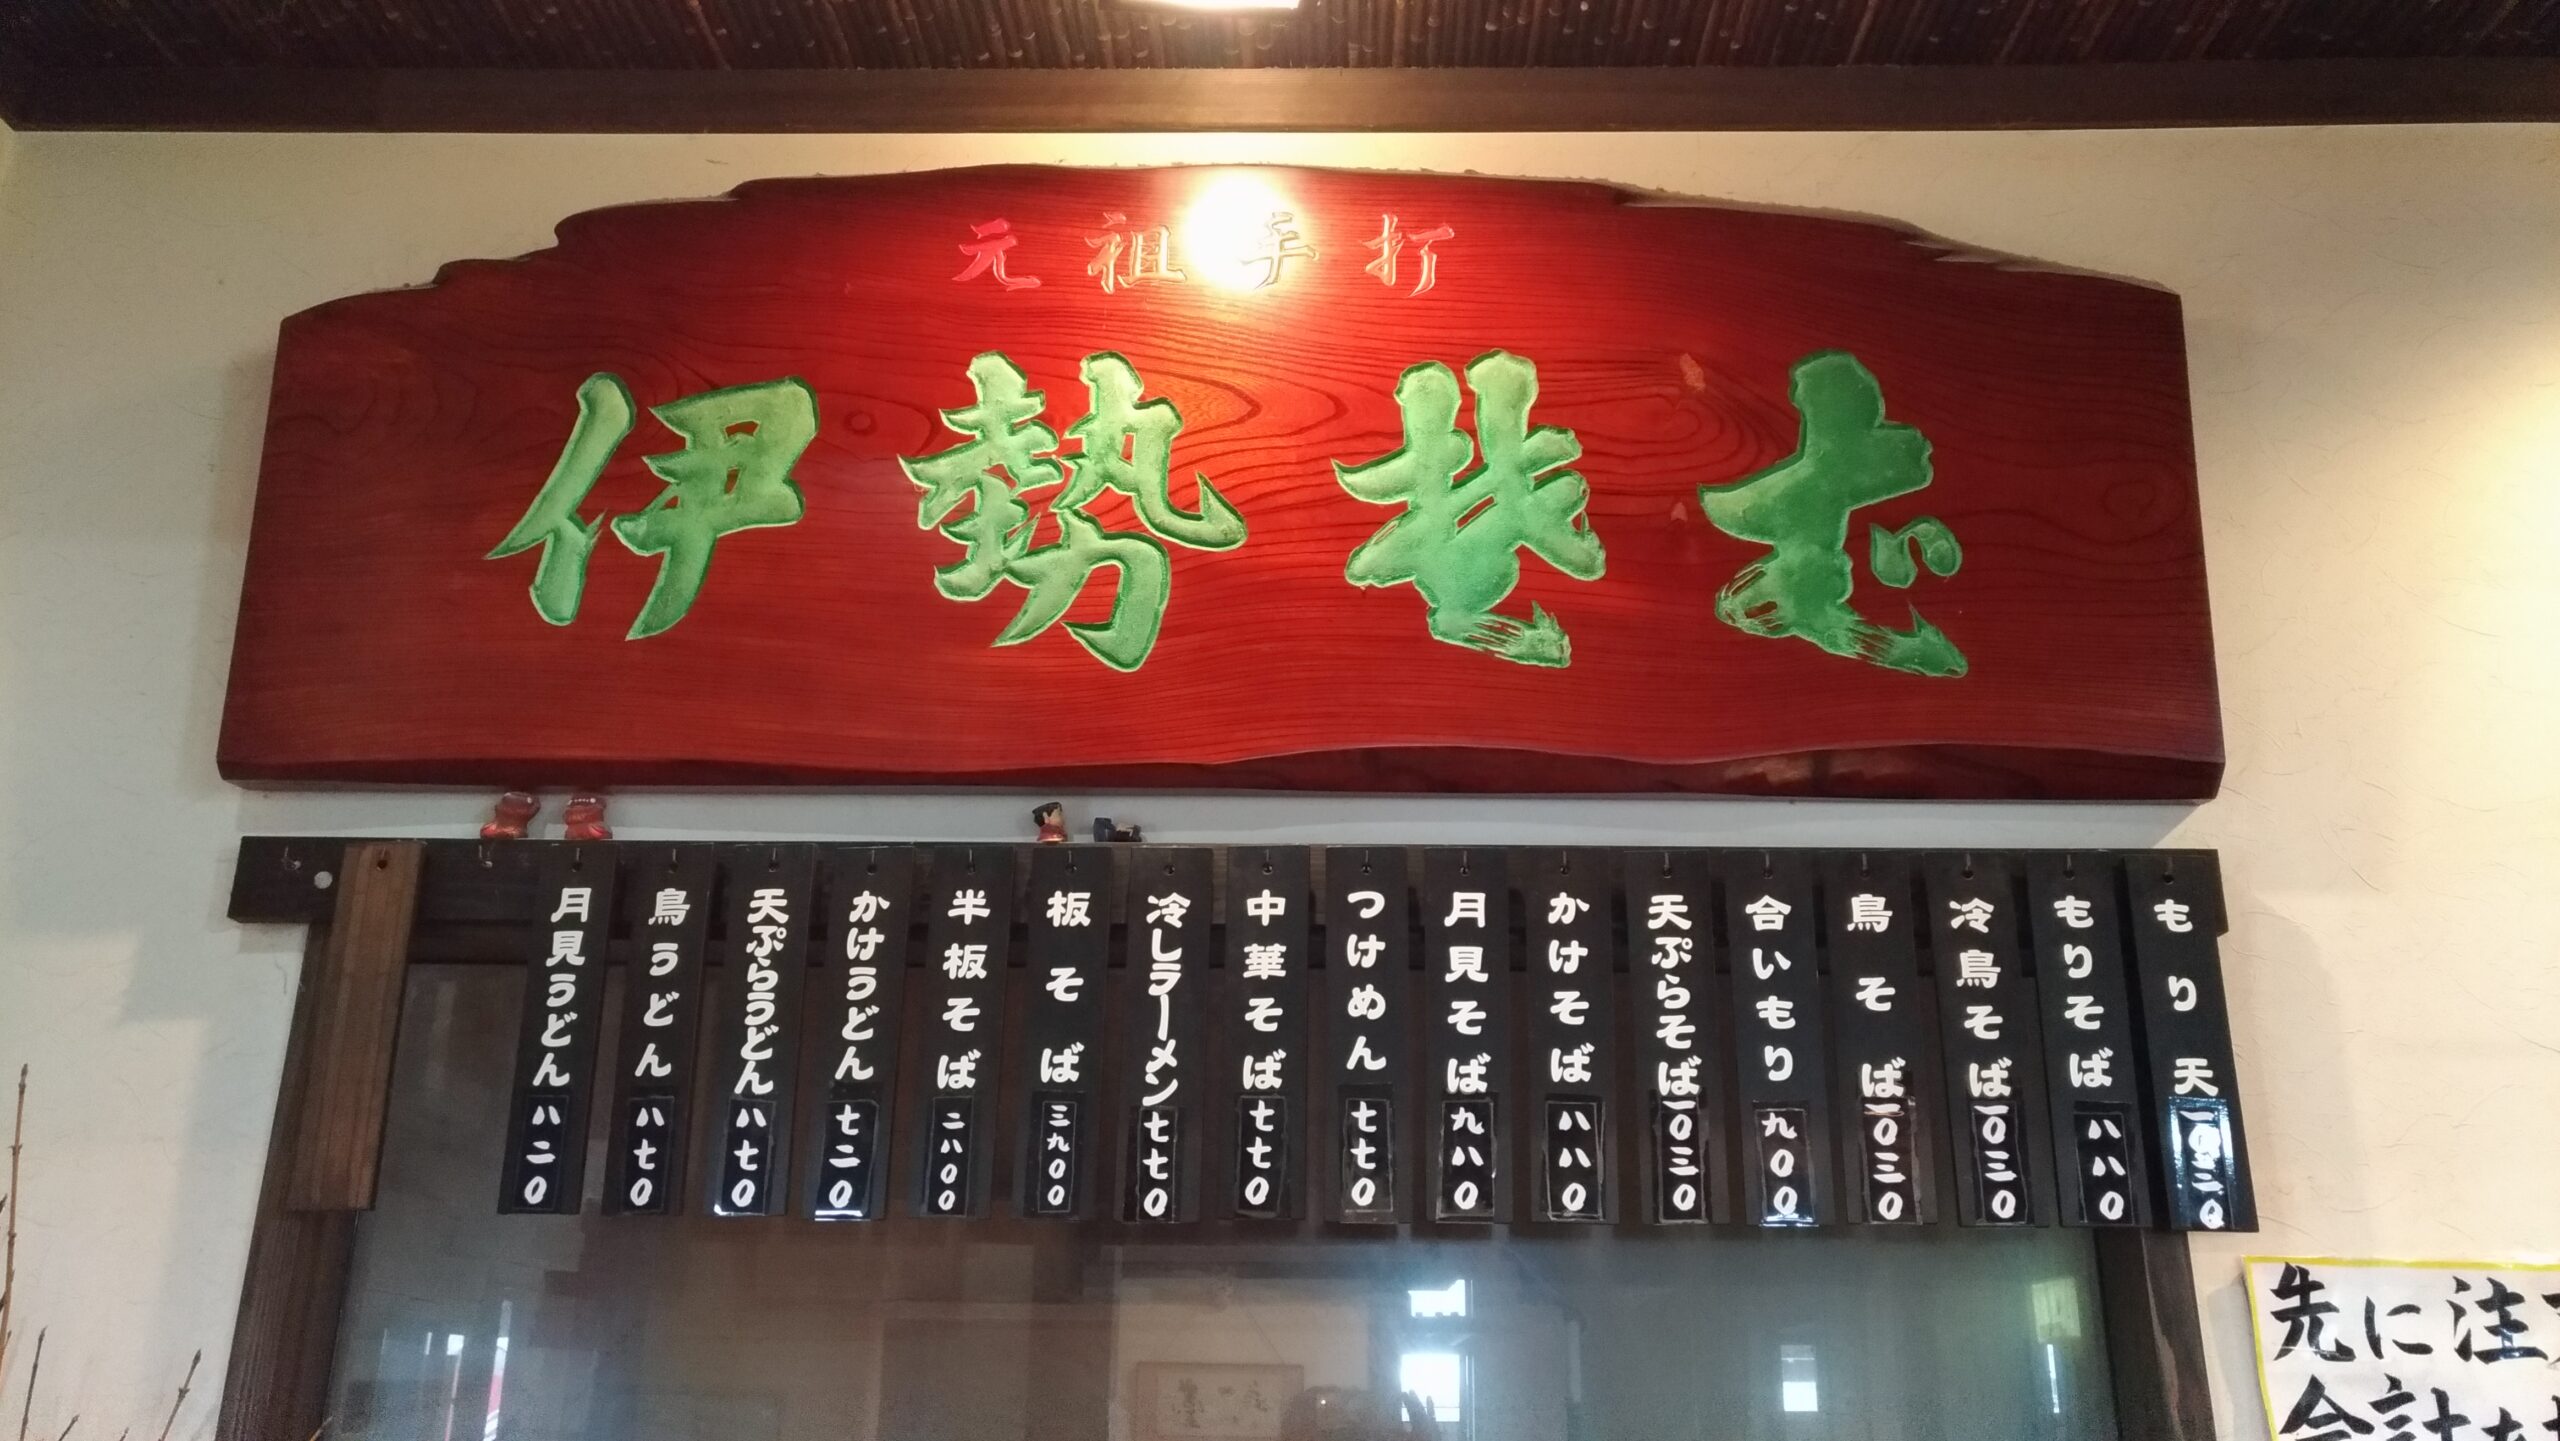 元祖手打
伊勢そば
もり天
もりそば 八八0
冷鳥そば 一0三0
鳥そば 一0三0
合いもり 九00
天ぷらそば 一0三0
かけそば 八八0
月見そば 九八0
つけめん 七七0
中華そば 七七0
冷しラーメン 七七0
板そば 三九00
半板そば 二八00
かけうどん 七二0
天ぷらうどん 八七0
鳥うどん 八七0
月見うどん 八二0
先に注
会計を